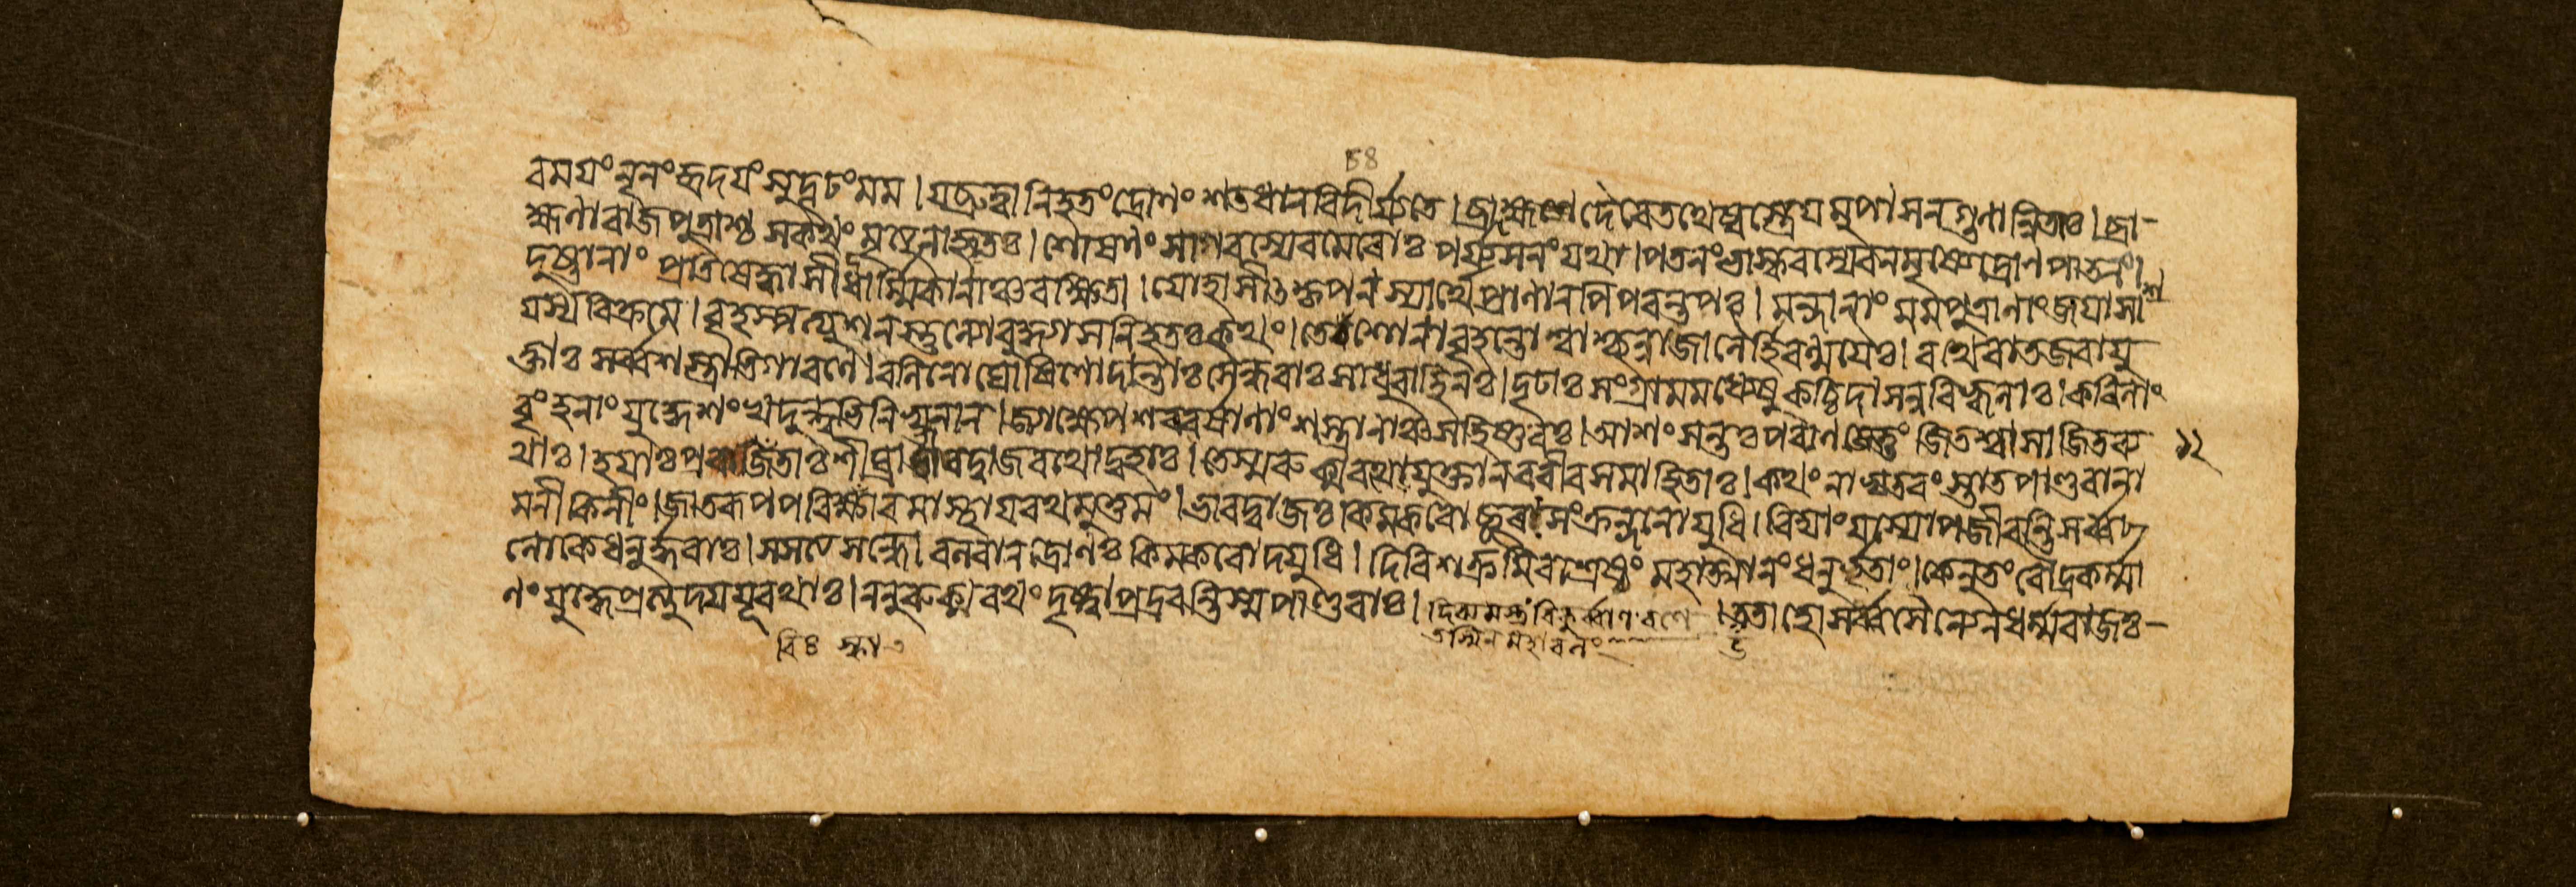 58
রময়ং নূনং হৃদয়ং সুদৃঢং মম। যচ্ছ্রুত্বা নিহতং দ্রোণং শতধা ন বিদীর্য্যতে। ব্রাহ্মে দৈবে তথেষ্বস্ত্রে যমুপাসন্ গুণান্বিতাঃ। ব্রা-
হ্মণা রাজপুত্রাশ্চ স কথং মৃত্যুনা হৃতঃ। শোষণং সাগরস্যেব মেরোঃ পর্য্যসনং যথা। পতনং ভাস্করস্যেব ন মৃষ্যে দ্রোণপাতনং।
দুষ্টানাং প্রতিষেদ্ধাসীদ্ধার্ম্মিকানাঞ্চ রক্ষিতা। যোহাসীৎ কৃপণস্যার্থে প্রাণানপি পরন্তপঃ। মন্দানাং মম পুত্রাণাং জয়াশা
যস্য বিক্রমে। বৃহস্পত্যুশনস্তুল্যো বুদ্ধ্যা স নিহতঃ কথং। তে চ শোণা বৃহন্তোশ্বাশ্ছন্না জালৈর্হিরন্ময়ৈঃ। রথে বাতজবা যু
ক্তাঃ সর্ব্বশস্ত্রাতিগা রণে। বলিনো ঘোষিণো দান্তাঃ সৈন্ধবাঃ সাধুবাহিনঃ। দৃঢাঃ সংগ্রামমধ্যেষু কচ্চিদাসন্ন বিহ্বলাঃ। করিণাং
বৃংহতাং যুদ্ধে শংখদুন্দুভিনিস্বনান। জ্যাক্ষেপশরবর্ষাণাং শস্ত্রাণাঞ্চ সহিষ্ণবঃ। আশংসন্তঃ পরান জেতুং জিতশ্বাসা জিতব্য
১২
থাঃ। হয়াঃ পরাজিতাঃ শীঘ্রা ভারদ্বাজরথোদ্বহাঃ। তে স্ম রুক্মরথে যুক্তা নরবীরসমাহিতাঃ। কথং নাভ্যতরংস্তাত পাণ্ডবানা
মনীকিনীং। জাতরূপপরিষ্কারমাস্থায় রথমুত্তমং। ভারদ্বাজঃ কিমকরোচ্ছূরঃ সংক্রন্দনো যুধি। বিদ্যাং যস্যোপজীবন্তি সর্ব্ব
লোকধনুর্দ্ধরাঃ। স সত্যসন্ধো বলবান দ্রোণঃ কিমকরোদ্যুধি। দিবি শক্রমিব শ্রেষ্ঠং মহামাত্রং ধনুর্ভৃতাং। কে নু তং রৌদ্রকর্ম্মা
ণং যুদ্ধে প্রত্যুদ্যযূ রথাঃ। ননু রুক্মরথং দৃষ্ট্বা প্রদ্রবন্তি স্ম পাণ্ডবাঃ। দিব্যমস্ত্রং বিকুর্ব্বাণং রণে । উতাহো সর্ব্বসৈন্যেন ধর্ম্মরাজঃ-
তস্মিন মহাবলং